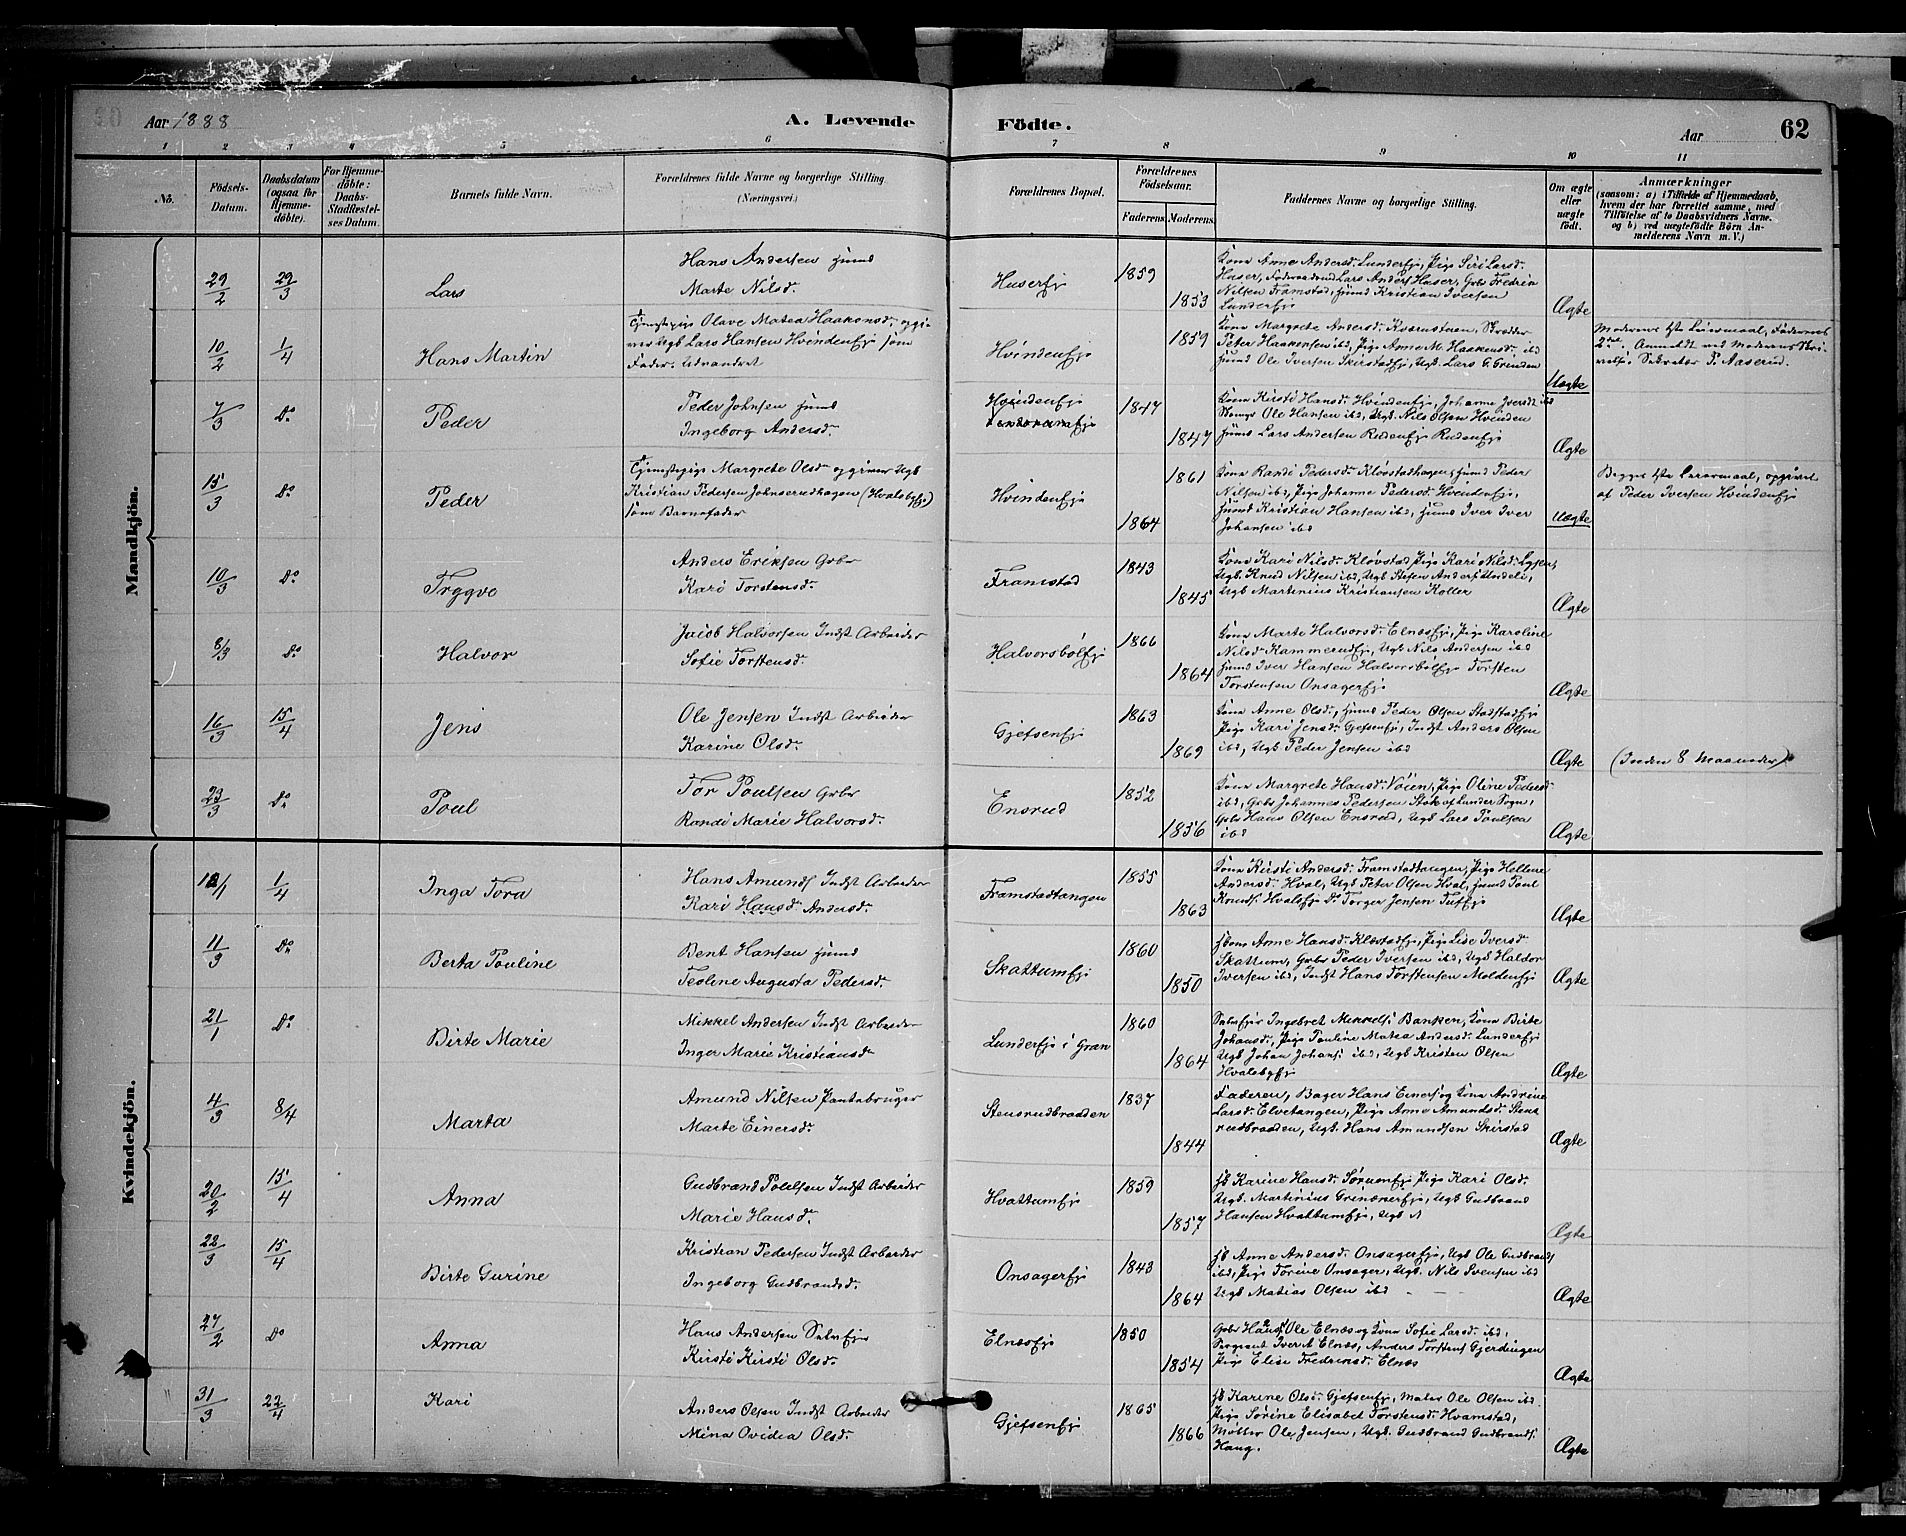 Aar 1888
A. Levende Födte.
Aar
62
1 2 3 4 5 6 7 8 9 10 11
No.
Födsels-Datum.
Daabsdatum (ogsaa for Hjemme-döbte).
For Hjemme-döbte: Daabs-Stadfæstel-ses Datum.
Barnets fulde Navn.
Forældrenes fulde Navne og borgerlige Stilling. (Næringsvei.)
Forældrenes Bopæl.
Forældrenes Födselsaar.
Faderens.
Moderens.
Faddernes Navne og borgerlige Stilling.
Om ægte eller uægte födt.
Anmærkninger
(saasom: a) i Tilfælde af Hjemmedaab,
hvem der har forrettet samme, med
Tilföielse af to Daabsvidners Navne.
og b) ved uægtefödte Börn An-
melderens Navn m. V.)
Mandkjön.
29/2 29/3 Lars
Hans Andersen Husmd
Marte Nilsd.
Huserfje
1859
1853
Kona Anne Andersd. Lunderfje, Pige Siri Larsd.
Huser, Lars Anders Huser, Gbr Fredrik
Nilsen Framstad, Husmd Kristian Iversen
Lunderfje
Ægte
10/2 1/4 Hans Martin
Tjenestepige Olave Matea Haakensd. opgi-
ver Ugb Lars Hansen Hvindenfje som
Fader. Udvandret
Hvindenfje
1859
Kona Margrete Andersd. Kværnstuen, Skrædder
Peter Haakensen ibd, Pige Anne M. Haakensd. ibd
Husmd Ole Iversen Skirstadfje, Ugb. Lars G. Grinden
Uægte
Moderens 1ste Leiermaal, Faderens
2det. Anmeldt ved Moderens Skri-
velse. P. Aaserud.
7/3 Do Peder
Peder Johnsen Husmd
Ingeborg Andersd.
Hvindenfje
1847
1847
Kona Kirsti Hansd. Hvindenfje, Johanne Iversdt ibd
Ole Hansen ibd, Ugb. Nils Olsen Hvinden
Husmd Lars Andersen Rudenfje Rudenfje
Ægte
15/3 Do Peder
Tjenestepige Margrete Olsd. opgiver Ugb
Kristian Pedersen Johnserudhagen (Hvalebyfje)
som Barnefader
Hvindenfje
1861
1864
Kona Randi Pedersd. Klövstadhagen, Husmd Peder
Nilsen ibd, Pige Johanne Pedersd. Hvindenfje,
Husmd Kristian Hansen ibd, Husmd Iver Iver
Johansen ibd
Uægte
Begges 1ste Leiermaal, opgivet
af Peder Iversen Hvindenfje
10/3 Do Trygve
Anders Eriksen Gbr
Kari Torstensd.
Framstad
1843
1845
Kona Kari Nilsd. Klövstad, Pige Kari Nilsd. Lysen,
Ugb. Knud Nilsen ibd, Ugb Anders
Ugb Martinius Kristiansen Koller
Ægte
8/3 Do Halvor
Jacob Halvorsen Indst Arbeider
Sofie Torstensd.
Halvorsbölfje
1866
1864
Kona Marte Halvorsd. Elnæsfje, Pige Karoline
Nilsd. Kammerudfje, Ugb Nils Andersen ibd
Husmd Iver Hansen Halvorsbölfje Torsten
Torstensen Onsagerfje
Ægte
16/3 15/4 Jens
Ole Jensen Indst Arbeider
Karine Olsd.
Gjefsenfje
1863
1869
Kona Anne Olsd., Husmd Peder Olsen Stadstadfje
Pige Kari Jensd. Gjefsenfje, Indst Anders Olsen
ibd, Ugb Peder Jensen ibd
Ægte
(Inden 8 Maaneder)
23/3 Do Poul
Tor Poulsen Gbr
Randi Marie Halvorsd.
Ensrud
1852
1856
Kona Margrete Hansd. Vöien, Pige Oline Pedersd
ibd, Gbr Johannes Pedersen Stok af Lunder Sogn,
Gbr Hans Olsen Ensrud, Ugb Lars Poulsen
ibd
Ægte
Kvindekjön.
18/1 1/4 Inga Tora
Hans Amunds Indst Arbeider
Kari Hansd. Andersd.
Framstadtangen
1855
1863
Kona Kirsti Andersd. Framstadtangen, Pige Hellene
Andersd. Hval, Ugb Peter Olsen Hval, Husmd Poul
Knuds. Hvalsfje Do Torger Jensen Tuffje
Ægte
11/3 Do Berta Pauline
Bent Hansen Husmd
Teoline Augusta Pedersd.
Skattumfje
1860
1850
Kona Anne Hansd. Klæstadfje, Pige Lise Iversd
Skattum, Gbr Peder Iversen ibd, Ugb Haldor
Iversen ibd, Indst Hans Torstensen Moldenfje
Ægte
21/1 Do Birte Marie
Mikkel Andersen Indst Arbeider
Inger Marie Kristiansd.
Lunderfje i Gran
1860
1864
Selvejer Ingebret Mikkels. Banken, Kona Birte
Johansd., Pige Pauline Matea Andersd. Lunderfje
Ugb Johan Johans. ibd, Ugb Kristen Olsen
Hvalebyfje
Ægte
4/3 8/4 Marta
Amund Nilsen Pantebruger
Marte Einersd.
Stensrudbraaden
1837
1844
Faderen, Bager Hans Einers. og Kona Andrine
Larsd. Elvetangen, Pige Anne Amundsd. Stens-
rudbraaden, Ugb. Hans Amundsen Skirstad
Ægte
20/2 15/4 Anna
Gudbrand Poulsen Indst Arbeider
Marie Hansd.
Hvattumfje
1859
1857
Kb Karine Hansd. Sörumfje, Pige Kari Olsd.
Ugb. Martinius Grinakerfje, Ugb Gudbrand
Hansen Hvattumfje, Ugb A
Ægte
22/3 15/4 Birte Gurine
Kristian Pedersen Indst Arbeider
Ingeborg Gudbrandsd.
Onsagerfje
1843
1864
Kb Anne Andersd. Onsagerfje, Ugb Ole Gudbrands
ibd, Pige Torine Onsager, Ugb. Nils Svensen ibd
Ugb Matias Olsen ibd
Ægte
27/2 Do Anna
Hans Andersen Selvejer
Kirsti Kirsti Olsd.
Elnæsfje
1850
1854
Gbr Hans Ole Elnæs og Kona Sofie Larsd. ibd,
Sergeant Iver A Elnæs, Anders Torstens Gjerdingen
Pige Elise Fredriksd. Elnæs
Ægte
31/3 22/4 Kari
Anders Olsen Indst Arbeider
Mina Ovidea Olsd.
Gjefsenfje
1865
1866
Kb Karine Olsd. Gjefsenfje, Maler Ole Olsen ibd.
Pige Sörine Elisabet Torstensd. Hvamstad,
Möller Ole Jensen, Ugb. Gudbrand Gudbrands.
Haug.
Ægte